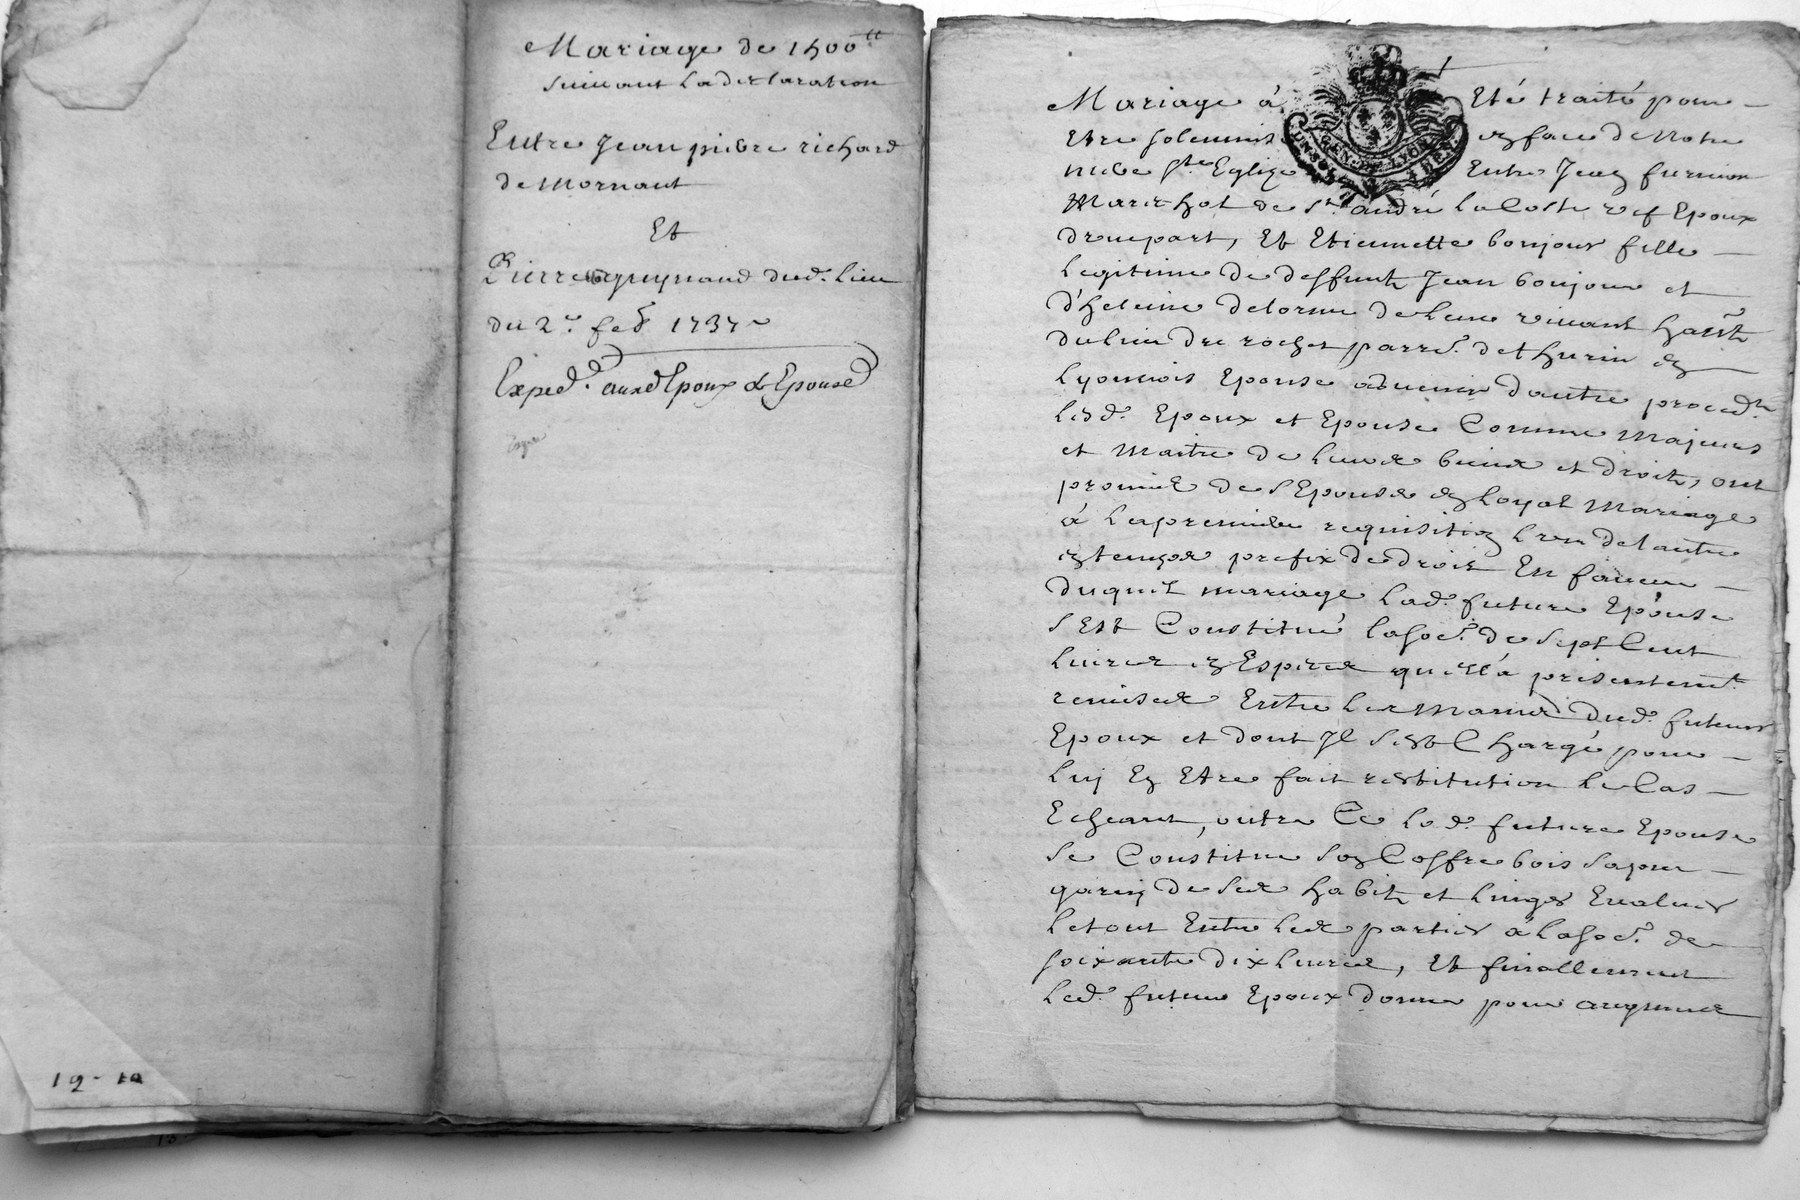 Mariage de 1500 ᵗᵗ
suiuant la declaration
Entre Jean pierre richard
de Mornant
Et
Pierre guynand dud. lieu
du 2.e feb 1737
Exped.e auxd Epoux & Epouse
19 - 10
Mariage à Eté traité pour
Etre solemnisé en face de Notre
mere s.te Eglize Entre Jean furnion
Marechal de s.t andré la Coste vef Epoux
d'une part, Et Etiennette bonjour fille
legitime de deffunt Jean bonjour et
d'heleine delorme de leur viuant habt
du lieu du rochet parre. de thurin en
Lyonnois Epouse aduenir d'autre proced.
lesd. Epoux et Epouse Comme Majeurs
et Maitre de leurs biens et droits, ont
promis de s'Epouser en loyal Mariage
à la premiere requisition l'un de l'autre
en temps prefix de droit En faueur
duquel mariage lad. future Epouse
s'Est Constitué la so.e de sept Cent
liures en Especes qu'ell'a presentemt.
remises Entre les Mains dud. futeur
Epoux et dont Jl s'est Chargé pour
luy En Etre fait restitution le Cas
Echeant, outre Ce lad. future Epouse
se Constitue son Coffre bois sapin
garny de ses habits et linges Eualués
le tout Entre les parties à la so.e de
soixante dix liures, Et finallement
led. futeur Epoux donne pour augment